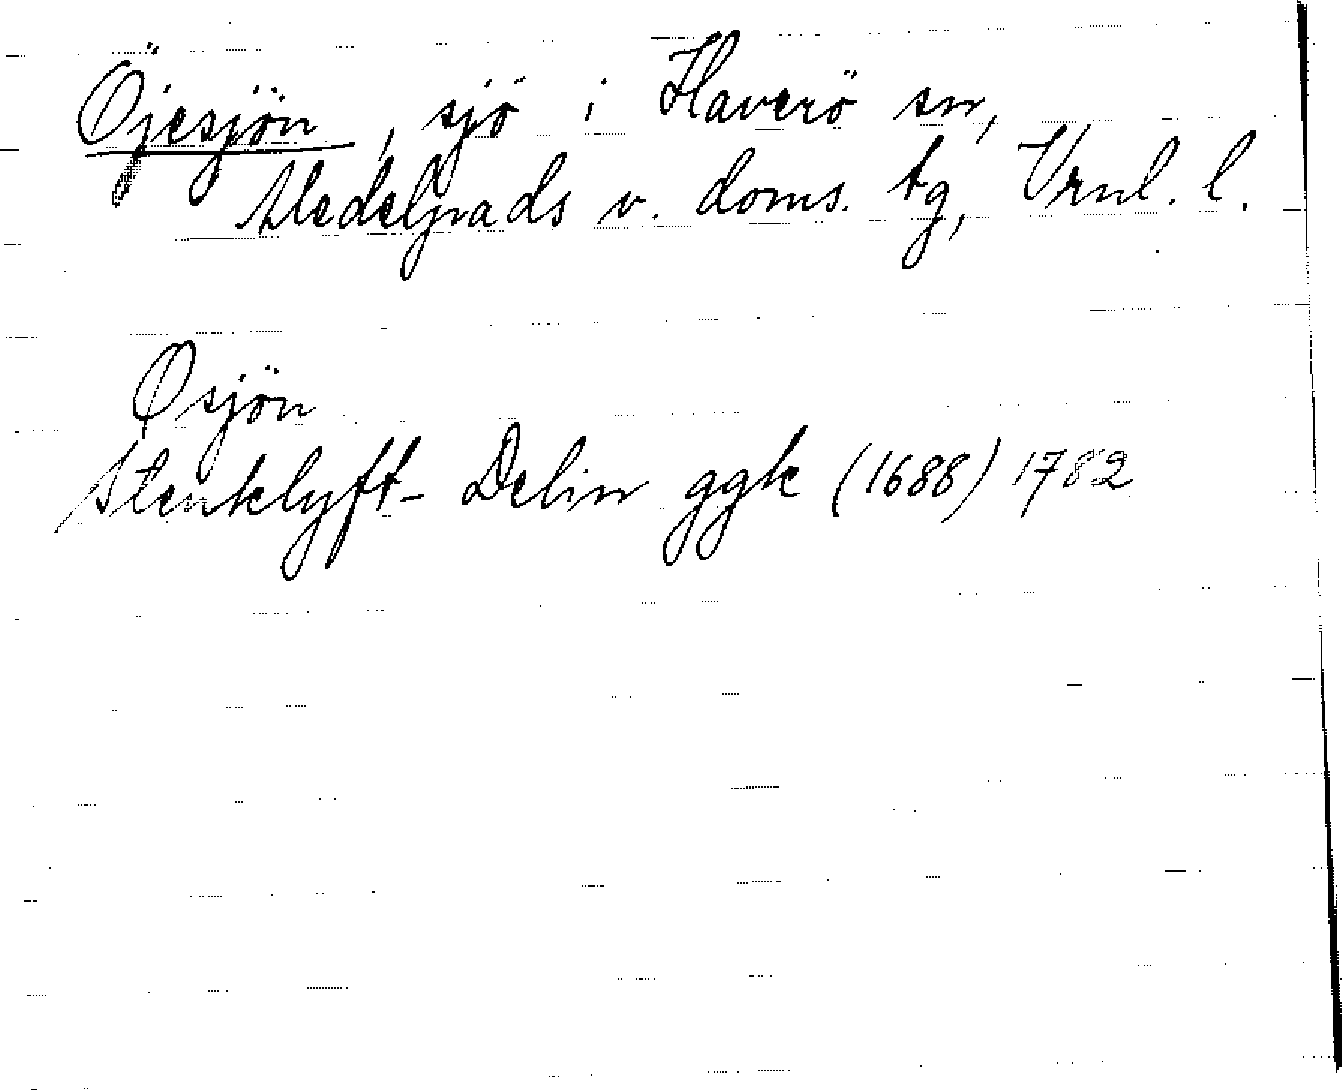 Öjesjön, sjö i Haverö sn,
Medelpads v. doms. tg, Vrnl. l.
Øsjön
Stenklyft- Delin ggk (1688) 1782